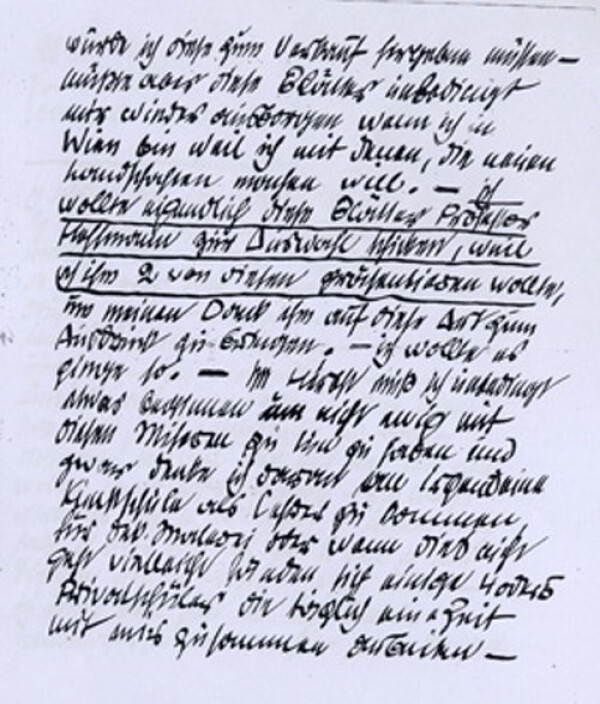 würde ich diese zum Verkauf hergeben müssen —
müsste aber diese Blätter unbedingt
mir wieder ausborgen wenn ich in
Wien bin weil ich mit denen, die neuen
machen will. — ich
wollte eigendlich diese Blätter Professor
Hoffmann zur Auswahl schicken, weil
ich ihm 2 von diesen präsentieren wollte,
um meinen Dank ihm auf diese Art zum
Ausdruck zu bringen. — ich wollte es
ginge so. — Im Herbst muß ich unbedingt
etwas beginnen um nicht ewig mit
diesen Miseren zu tun zu haben und
zwar denke ich daran an irgendeine
Kunstschule als Lehrer zu kommen,
für dek. Malerei oder wenn dies nicht
geht vielleicht fänden sich einige 4 oder 5
Privatschüler die täglich eine Zeit
mit mir zusammen arbeiten —